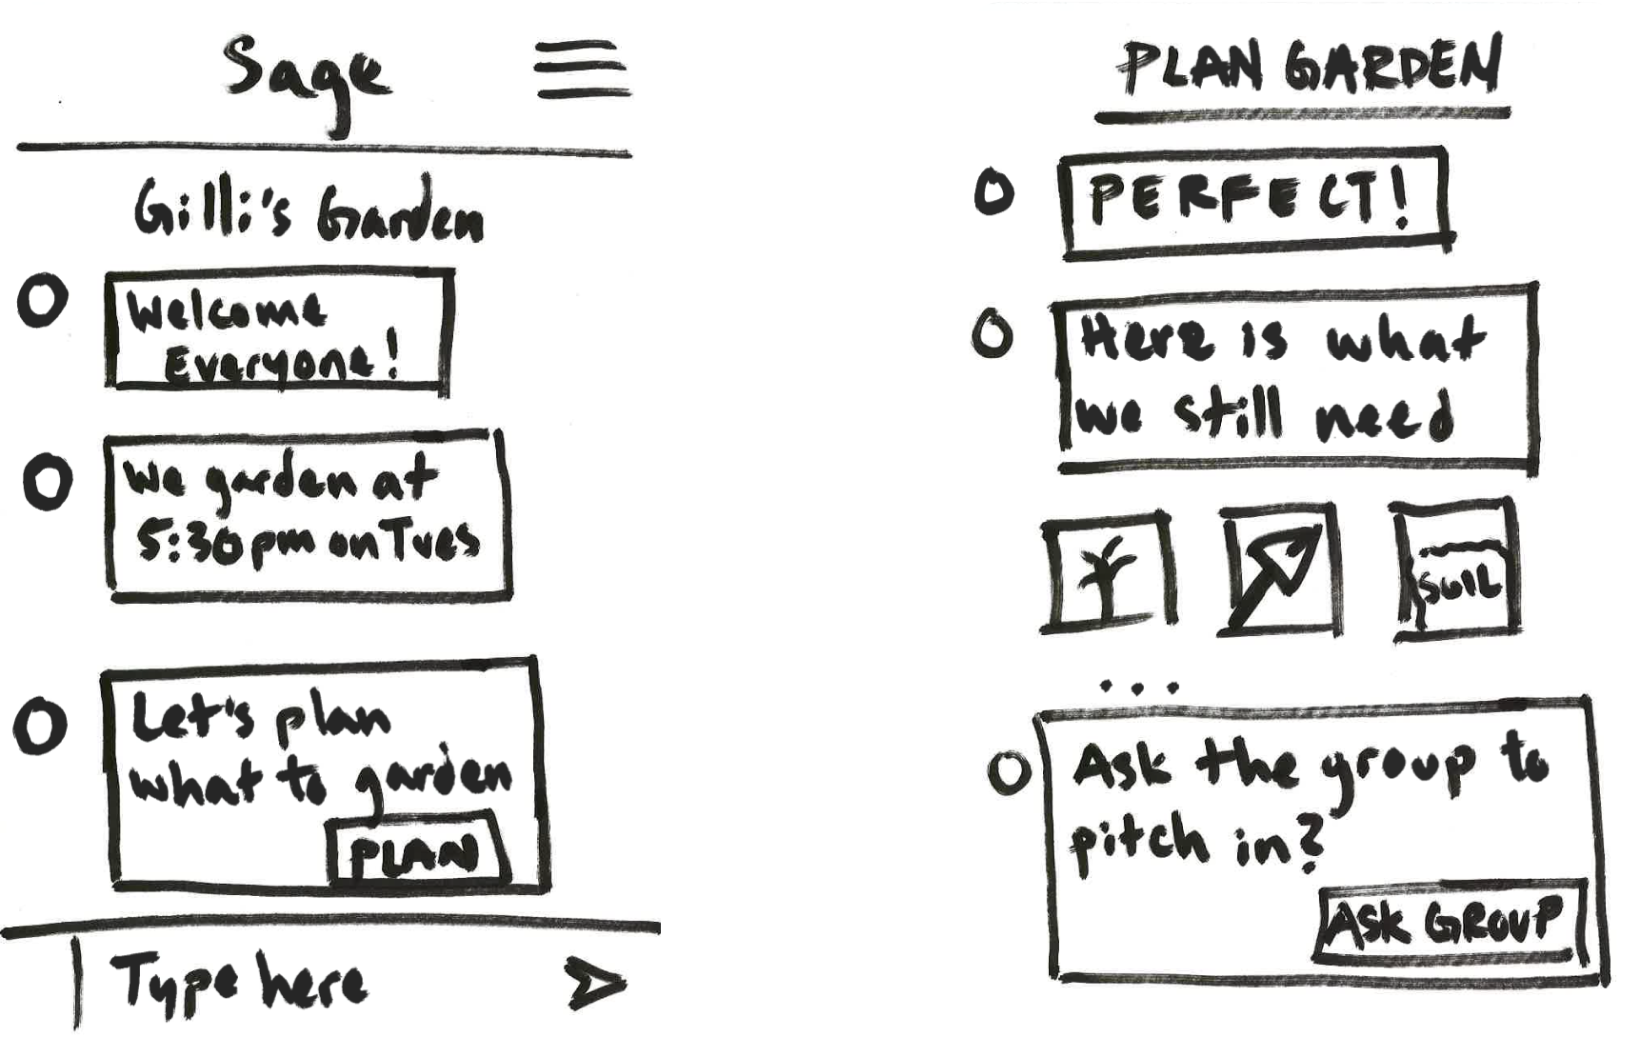 Sage
Gilli's Garden
Welcome
Everyone!
We garden at
5:30pm on Tues
Let's plan
what to garden
PLAN
Type here
PLAN GARDEN
PERFECT!
Here is what
we still need
SOIL
...
Ask the group to
pitch in?
ASK GROUP